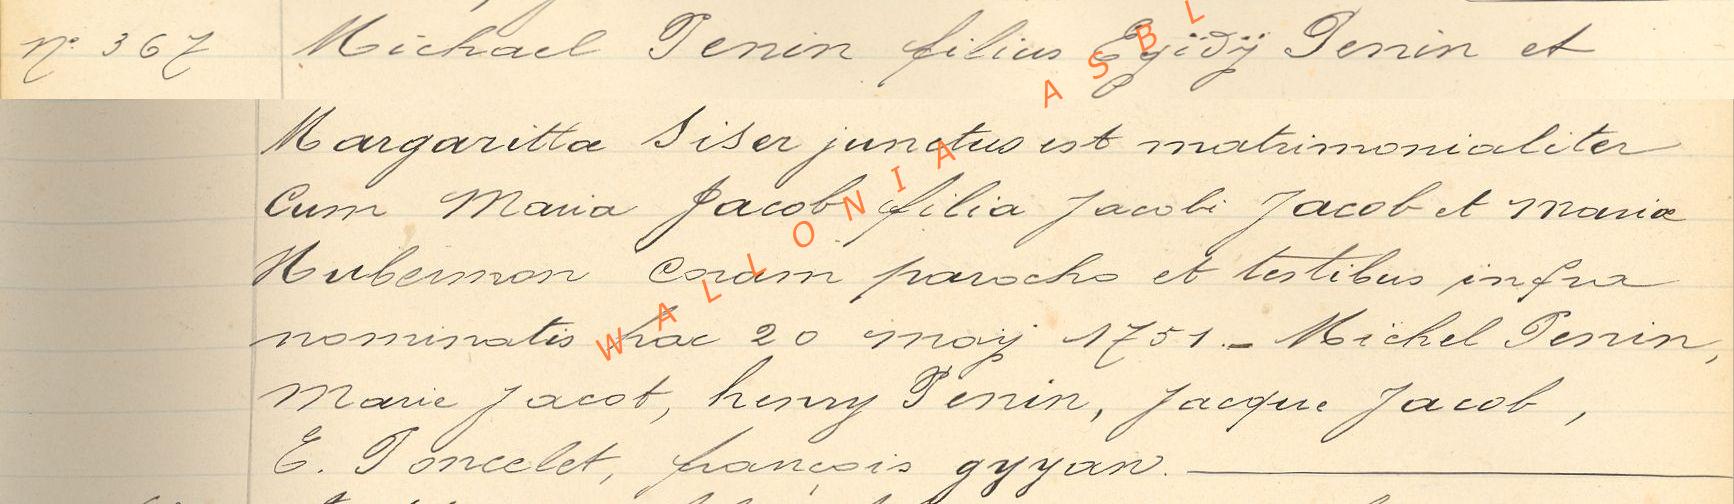 n° 367 Michael Penin filius Egidÿ Penin et
Margaritta Siser junctus est matrimonialiter
Cum Maria Jacob filia Jacobi Jacob et Mariæ
Hubermon Coram parocho et testibus infra
nominatis hac 20 maÿ 1751. - Michel Penin,
Marie Jacob, henry Penin, Jacque Jacob,
E. Poncelet, françois gyyan.
WALLONIA ASBL